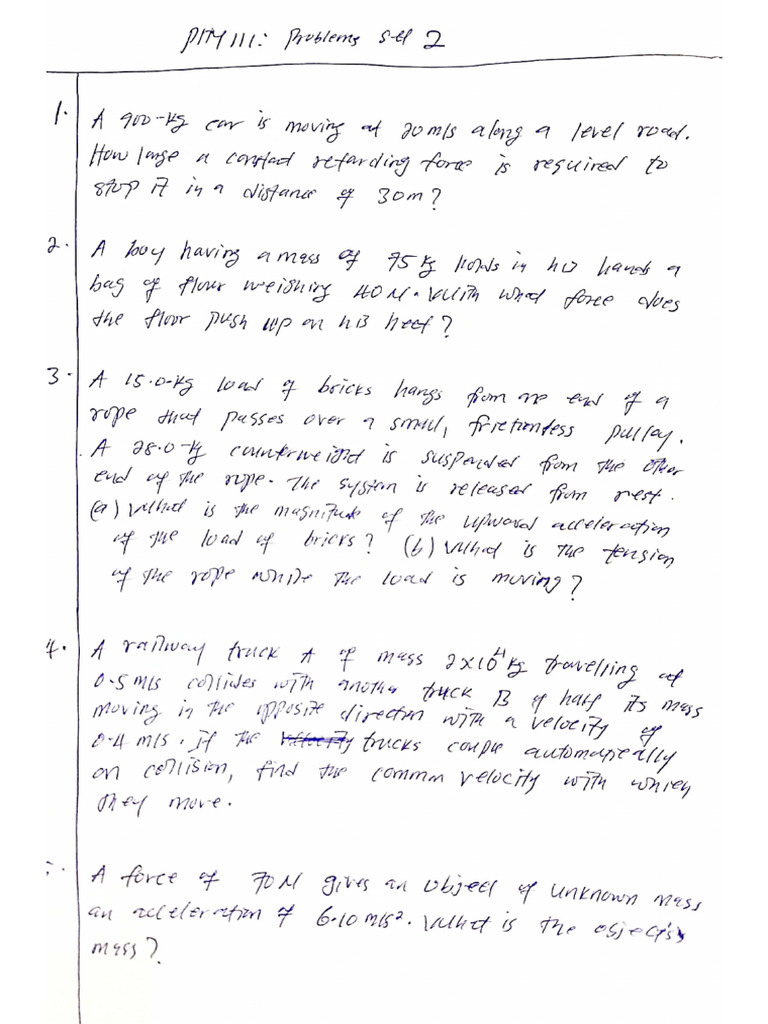 PHY 111: Problems Set 2
1. A 900-kg car is moving at 20m/s along a level road.
How large a constant retarding force is required to
stop it in a distance of 30m?
2. A boy having a mass of 75kg holds in his hands a
bag of flour weighing 40N. With what force does
the floor push up on his feet?
3. A 15.0-kg load of bricks hangs from one end of a
rope that passes over a small, frictionless pulley.
A 28.0-kg counterweight is suspended from the other
end of the rope. The system is released from rest.
(a) What is the magnitude of the upward acceleration
of the load of bricks? (b) What is the tension
of the rope while the load is moving?
4. A railway truck A of mass 2x10⁴kg travelling at
0.5m/s collides with another truck B of half its mass
moving in the opposite direction with a velocity of
0.4m/s. If the trucks couple automatically
on collision, find the common velocity with which
they move.
A force of 70N gives an object of unknown mass
an acceleration of 6.10m/s². What is the object's
mass?